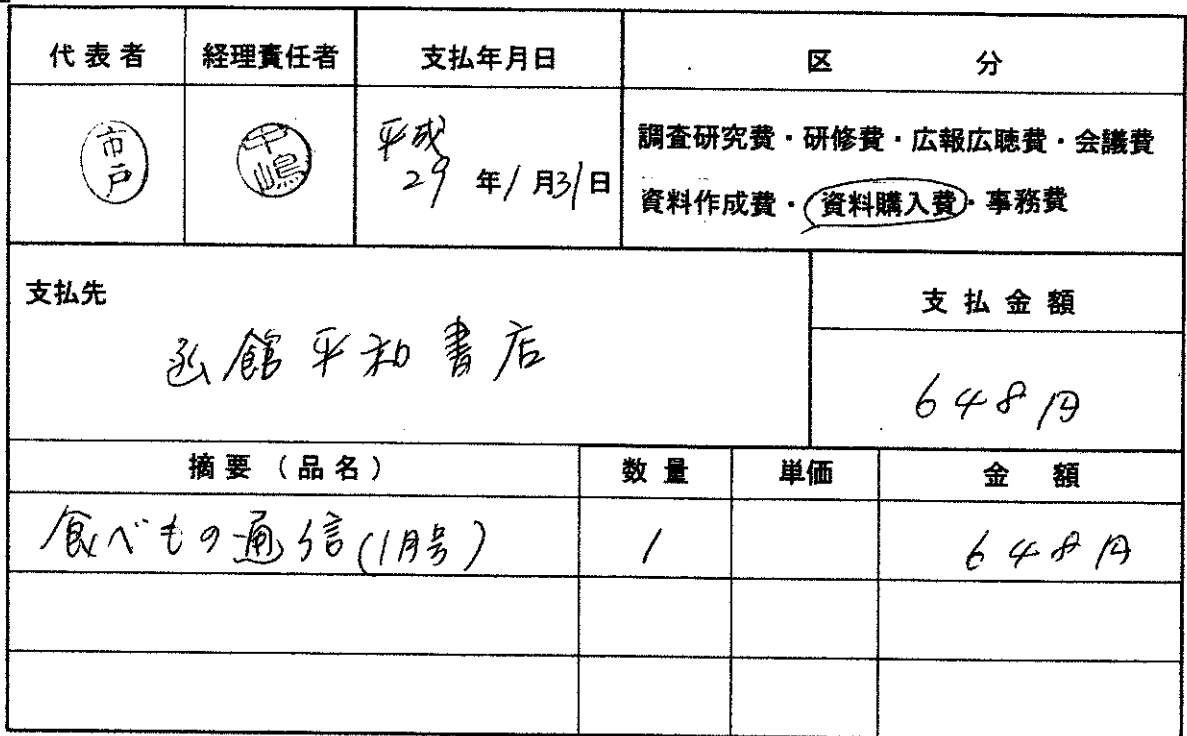 代表者 経理責任者 支払年月日 区分
市戸 千嶋 平成29年1月31日 調査研究費・研修費・広報広聴費・会議費
資料作成費・資料購入費・事務費
支払先 支払金額
函館平和書店
648円
摘要（品名） 数量 単価 金額
食べもの通信(1月号) 1 648円